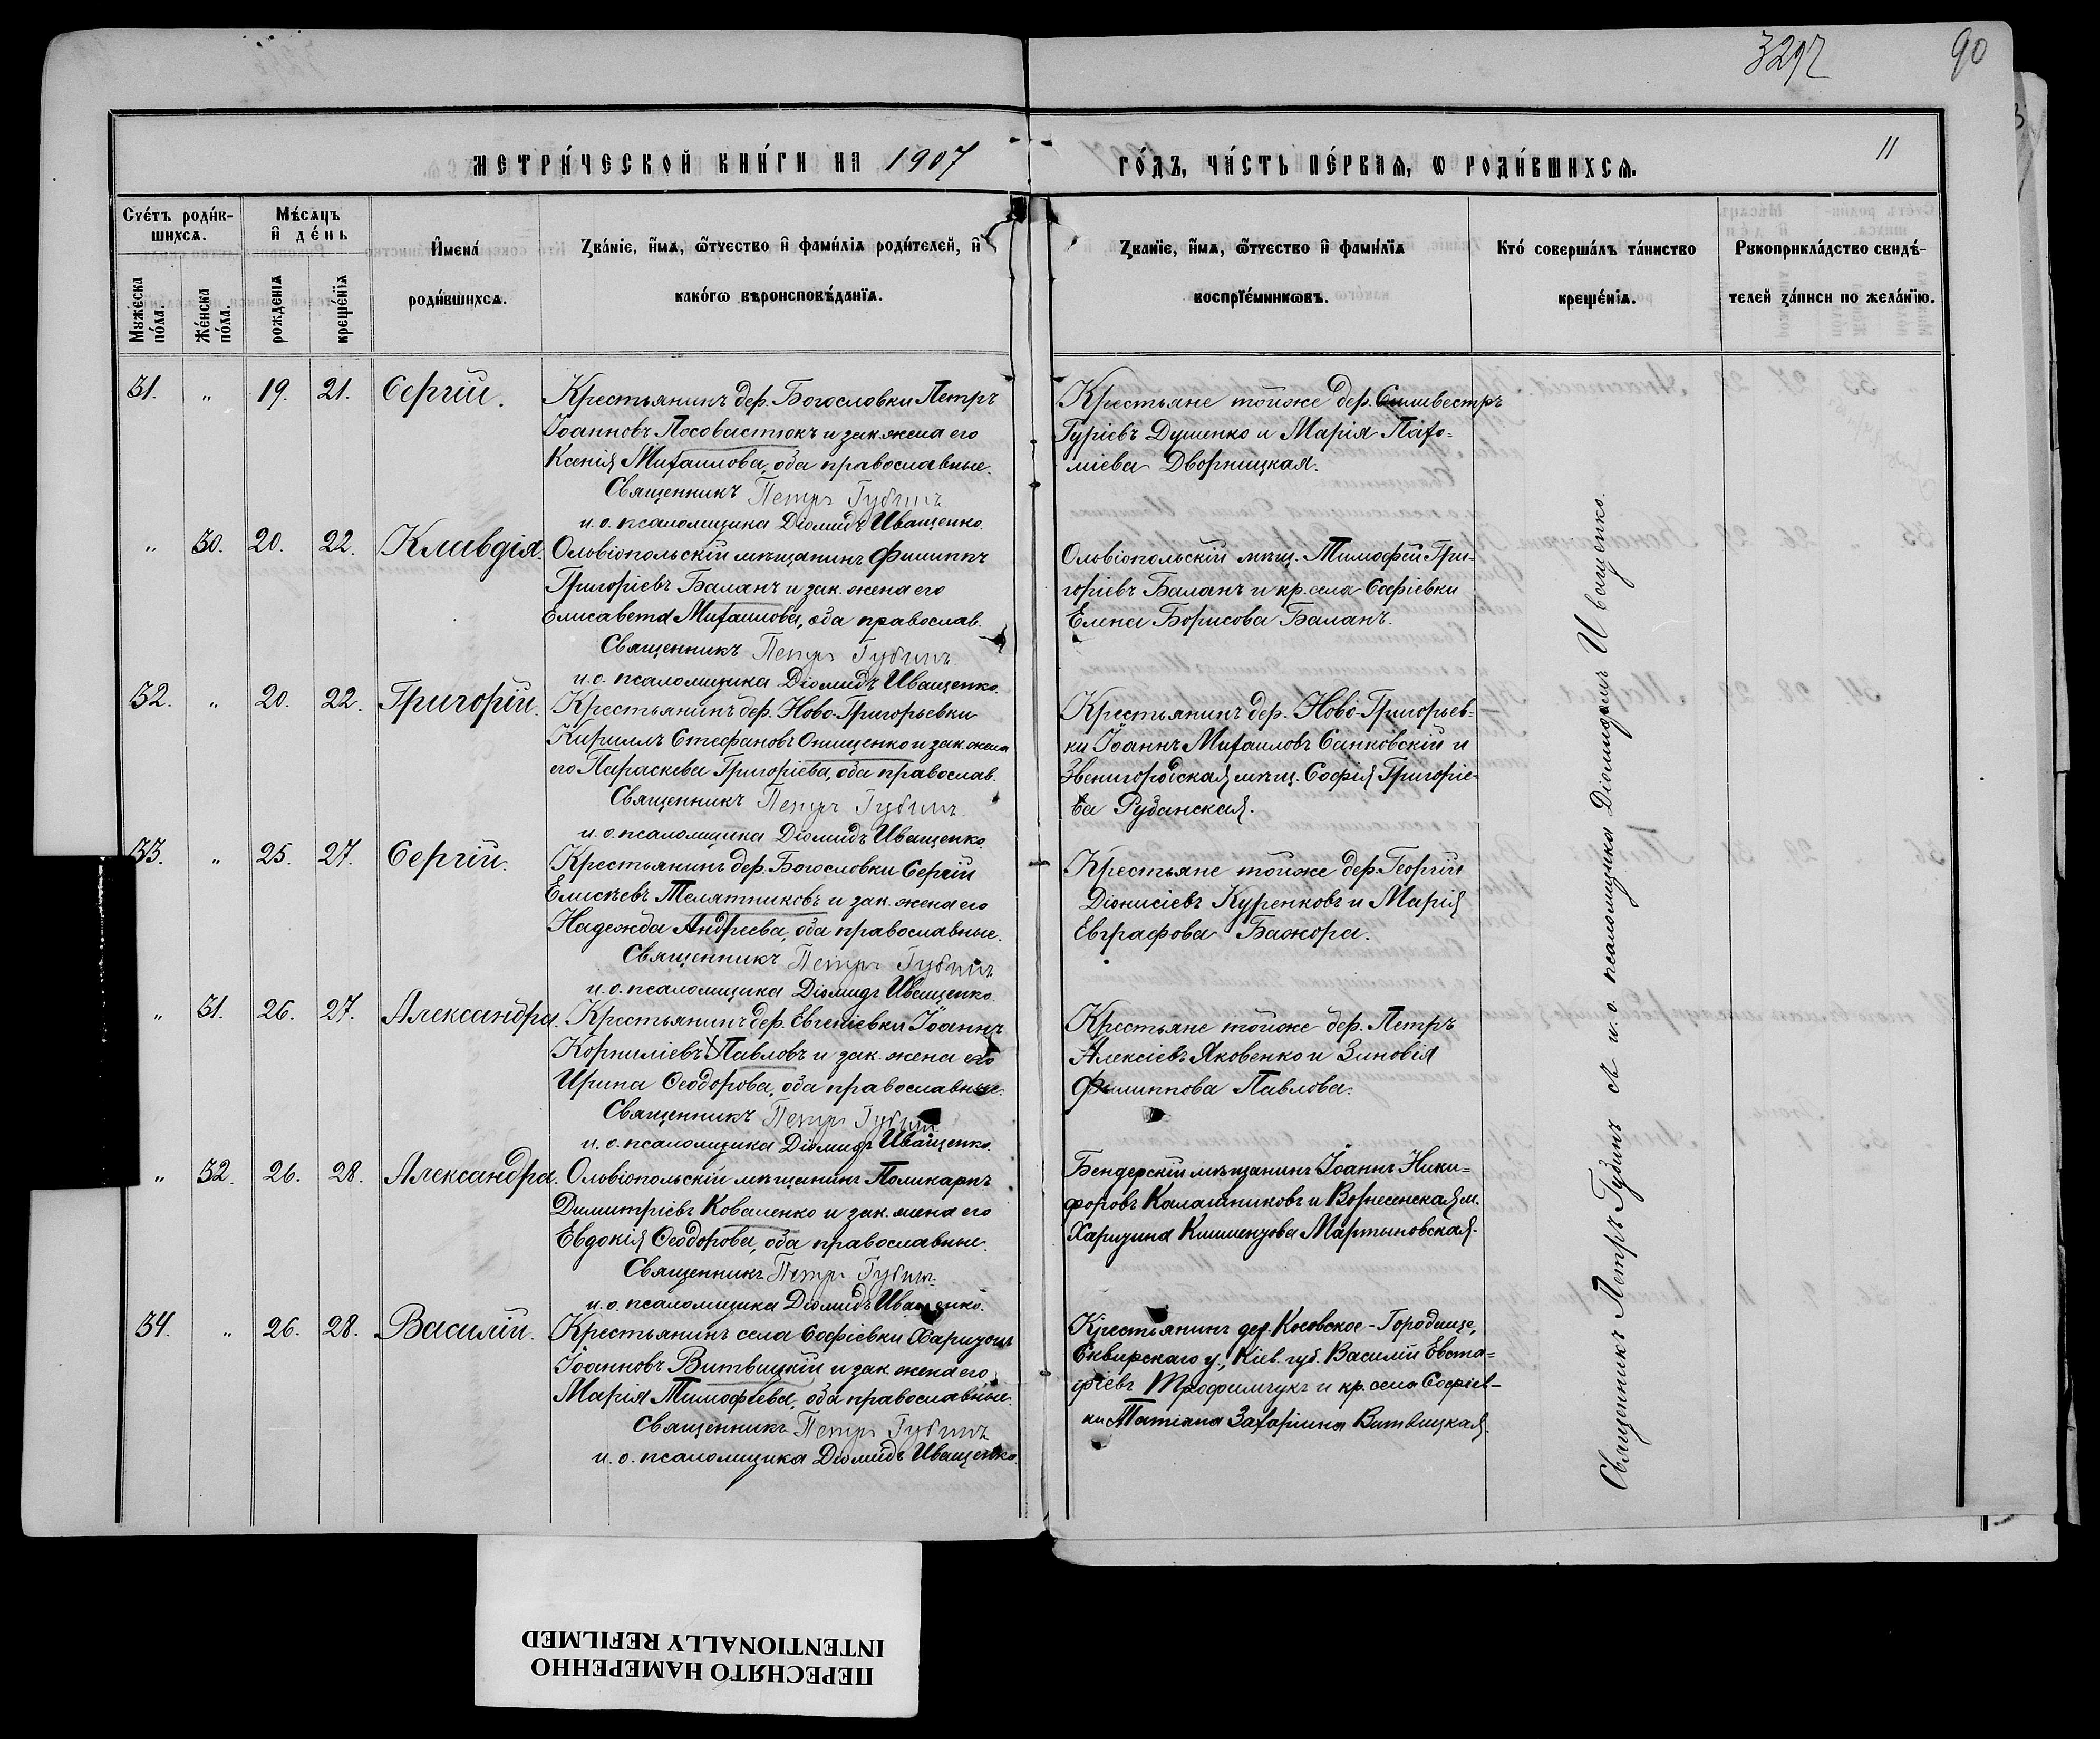 3297 90
11
МЕТРИ́ЧЕСКОЙ КНИ́ГИ НА 1907 ГО́ДЪ, ЧА́СТЬ ПЕ́РВАѦ, Ѡ РОДИ́ВШИХСѦ.
Сче́тъ роди́в-
шихсѧ.
Мꙋ́жеска по́ла.
Же́нска по́ла.
Мѣ́сѧцъ и҆ де́нь
рожденїѧ
креще́нїѧ
И҆мена́
роди́вшихсѧ.
Зва́нїе, и҆́мѧ, ѻ҆́тчество и҆ фами́лїѧ роди́телей, и҆
како́гѡ вѣроисповѣ́данїѧ.
Зва́нїе, и҆́мѧ, ѻ҆́тчество и҆ фами́лїѧ
воспрїе́мникѡвъ.
Кто́ соверша́лъ та́инство
креще́нїѧ.
Рꙋкоприкла́дство свидѣ́-
телей за́писи по жела́нїю.
31. " 19. 21. Сергій.
Крестьянинъ дер. Богословки Петръ
Іоанновъ Пособастюкъ и зак. жена его
Ксенія Михаилова, оба православные.
Священникъ Петръ Губинъ
и. о. псаломщика Діомидъ Иващенко.
Крестьяне тойже дер. Сильвестръ
Гуріевъ Душенко и Марія Пахо-
міева Дворницкая.
" 30. 20. 22. Клавдія.
Ольвіопольскій мѣщанинъ Филиппъ
Григоріевъ Баланъ и зак. жена его
Елисавета Михаилова, оба православ.
Священникъ Петръ Губинъ
и. о. псаломщика Діомидъ Иващенко.
Ольвіопольскій мѣщ. Тимофей Гри-
горіевъ Баланъ и кр. села Софіевки
Елена Борисова Баланъ.
32. " 20. 22. Григорій.
Крестьянинъ дер. Ново-Григорьевки
Кириллъ Стефановъ Онищенко и зак. жена
его Параскева Григоріева, оба православ.
Священникъ Петръ Губинъ
и. о. псаломщика Діомидъ Иващенко.
Крестьянинъ дер. Ново-Григорьев-
ки Іоаннъ Михаиловъ Санковскій и
Звенигородская мѣщ. Софія Григоріе-
ва Рубанская.
33. " 25. 27. Сергій.
Крестьянинъ дер. Богословки Сергій
Елисѣевъ Телятниковъ и зак. жена его
Надежда Андреева, оба православные.
Священникъ Петръ Губинъ
и. о. псаломщика Діомидъ Иващенко.
Крестьяне тойже дер. Георгій
Діонисіевъ Куренковъ и Марія
Евграфова Бажора.
" 31. 26. 27. Александра.
Крестьянинъ дер. Евгеніевки Іоаннъ
Корниліевъ Павловъ и зак. жена его
Ирина Ѳеодорова, оба православные.
Священникъ Петръ Губинъ
и. о. псаломщика Діомидъ Иващенко.
Крестьяне тойже дер. Петръ
Алексіевъ Яковенко и Зиновія
Филиппова Павлова.
" 32. 26. 28. Александра.
Ольвіопольскій мѣщанинъ Поликарпъ
Димитріевъ Коваленко и зак. жена его
Евдокія Ѳеодорова, оба православные.
Священникъ Петръ Губинъ
и. о. псаломщика Діомидъ Иващенко.
Бендерскій мѣщанинъ Іоаннъ Ники-
форовъ Калашниковъ и Вознесенская м.
Харитина Климентова Мартыновская.
34. " 26. 28. Василій.
Крестьянинъ села Софіевки Харитонъ
Іоанновъ Витвицкій и зак. жена его
Марія Тимофеева, оба православные.
Священникъ Петръ Губинъ
и. о. псаломщика Діомидъ Иващенко.
Крестьянинъ дер. Косовское-Городище,
Сквирскаго у., Кіев. губ. Василій Евста-
фіевъ Трофимчукъ и кр. села Софіев-
ки Татіана Захаріина Витвицкая.
Священникъ Петръ Губинъ съ и. о. псаломщика Діомидомъ Иващенко.
ПЕРЕСНЯТО НАМЕРЕННО
INTENTIONALLY REFILMED